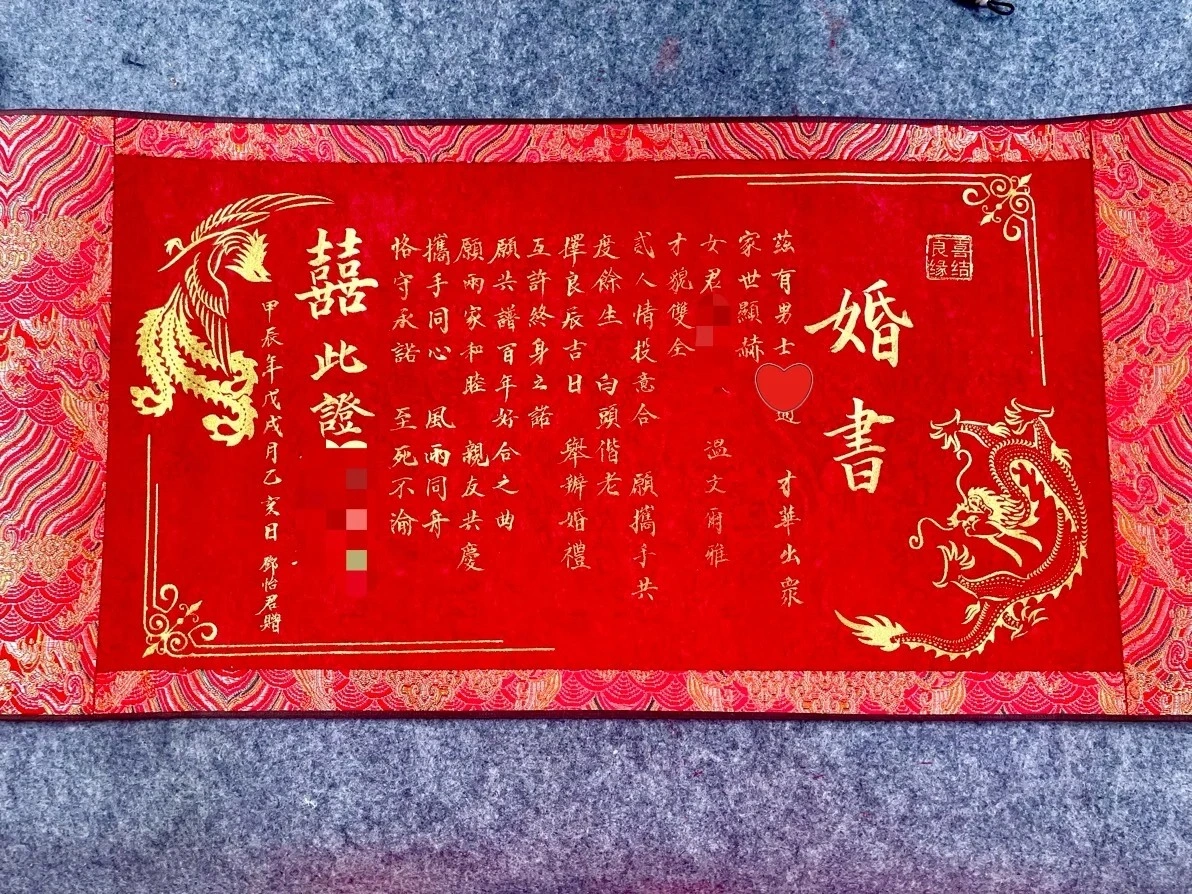 喜结良缘
婚書
茲有男士 才華出眾
家世顯赫
女君 溫文爾雅
才貌雙全
貳人情投意合 願攜手共
度餘生 白頭偕老
擇良辰吉日 舉辦婚禮
互許終身之諾
願共譜百年好合之曲
願兩家和睦 親友共慶
攜手同心 風雨同舟
恪守承諾 至死不渝
囍此證
甲辰年戊戌月乙亥日 鄧怡君贈